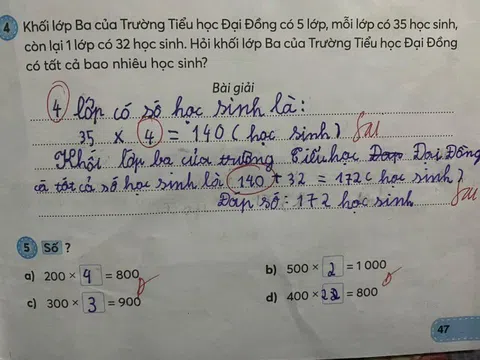 4 Khối lớp Ba của Trường Tiểu học Đại Đồng có 5 lớp, mỗi lớp có 35 học sinh,
còn lại 1 lớp có 32 học sinh. Hỏi khối lớp Ba của Trường Tiểu học Đại Đồng
có tất cả bao nhiêu học sinh?
Bài giải
4 lớp có số học sinh là:
35 x 4 = 140 ( học sinh ) Sai
Khối lớp ba của trường Tiểu học Đap Dại Đồng
cả tất cả số học sinh là 140 + 32 = 172 ( học sinh )
Đáp số: 172 học sinh Sai
5 Số ?
a) 200 × 4 = 800
b) 500 × 2 = 1 000
c) 300 × 3 = 900
d) 400 × 2 = 800
47